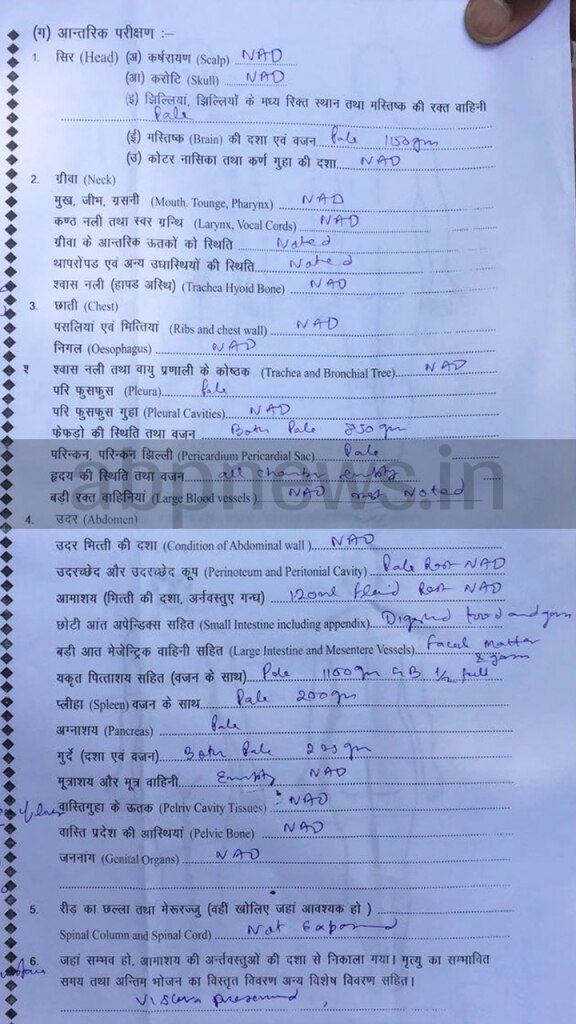 (ग) आन्तरिक परीक्षण :–
1. सिर (Head) (अ) कर्षरायण (Scalp) NAD
(आ) करोटि (Skull) NAD
(इ) झिल्लियां, झिल्लियों के मध्य रिक्त स्थान तथा मस्तिष्क की रक्त वाहिनी
Pale
(ई) मस्तिष्क (Brain) की दशा एवं वजन Pale 1150gm
(उ) कोटर नासिका तथा कर्ण गुहा की दशा NAD
2. ग्रीवा (Neck)
मुख, जीम, ग्रसनी (Mouth. Tounge, Pharynx) NAD
कण्ठ नली तथा स्वर ग्रन्थि (Larynx, Vocal Cords) NAD
ग्रीवा के आन्तरिक ऊतकों को स्थिति Noted
थापरोंपड एवं अन्य उधास्थियों की स्थिति Noted
श्वास नली (हापड अस्थि) (Trachea Hyoid Bone) NAD
3. छाती (Chest)
पसलियां एवं मित्तियां (Ribs and chest wall) NAD
निगल (Oesophagus) NAD
श्वास नली तथा वायु प्रणाली के कोष्ठक (Trachea and Bronchial Tree) NAD
परि फुसफुस (Pleura) Pale
परि फुसफुस गुहा (Pleural Cavities) NAD
फेफड़ो की स्थिति तथा वजन Both Pale 850 gm
परिन्कन, परिन्कन झिल्ली (Pericardium Pericardial Sac) Pale
हृदय की स्थिति तथा वजन all chamber empty
बड़ी रक्त वाहिनियां (Large Blood vessels) NAD Noted
abpnews.in
4. उदर (Abdomen)
उदर मित्ती की दशा (Condition of Abdominal wall) NAD
उदरच्छेद और उदरच्छेद कूप (Perinoteum and Peritonial Cavity) Pale Rest NAD
आमाशय (मित्ती की दशा, अर्नवस्तुए गन्ध) 120ml fluid Rest NAD
छोटी आंत अपेन्डिक्स सहित (Small Intestine including appendix) Digested food and gas
बड़ी आत मेजेन्ट्रिक वाहिनी सहित (Large Intestine and Mesentere Vessels) Faecal matter
& gas
यकृत पित्ताशय सहित (वजन के साथ) Pale 1150gm GB 1/2 full
प्लीहा (Spleen) वजन के साथ Pale 200gm
अग्नाशय (Pancreas) Pale
गुर्दे (दशा एवं वजन) Both Pale 220 gm
मूत्राशय और मूत्र वाहिनी Empty NAD
वास्तिगुहा के ऊतक (Pelriv Cavity Tissues) NAD
वास्ति प्रदेश की आस्थियां (Pelvic Bone) NAD
जननांग (Genital Organs) NAD
5. रीड़ का छल्ला तथा मेरूरज्जु (वहीं खोलिए जहां आवश्यक हो )
Spinal Column and Spinal Cord) Not Exposed
6. जहां सम्भव हो, आमाशय की अर्न्तवस्तुओं की दशा से निकाला गया। मृत्यु का सम्भावित
समय तथा अन्तिम भोजन का विस्तृत विवरण अन्य विशेष विवरण सहित।
Viscera preserved